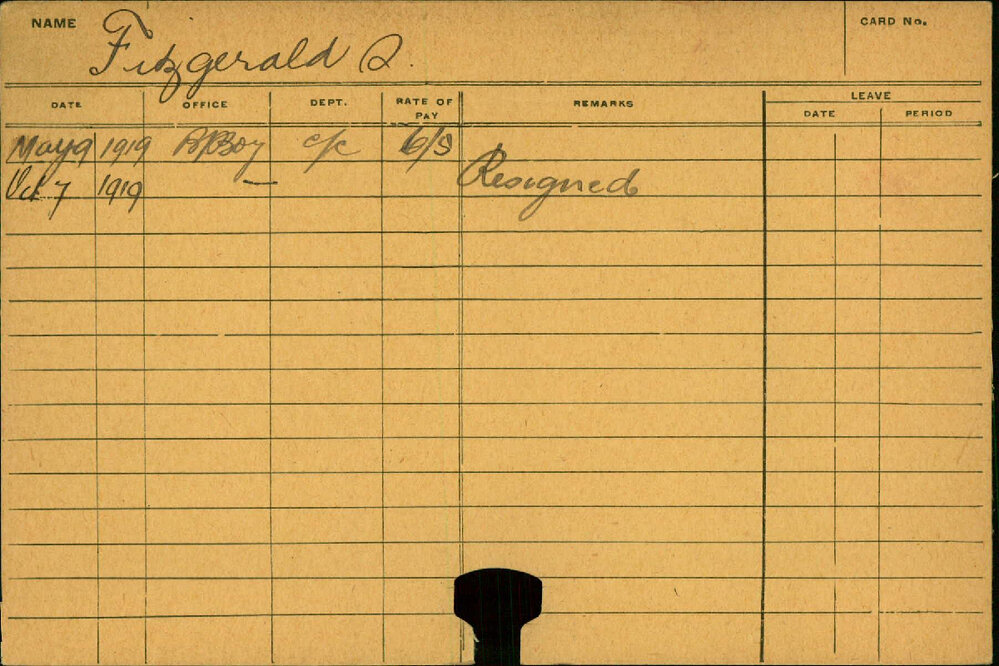 NAME Fitzgerald CARD No.
DATE OFFICE DEPT. RATE OF PAY REMARKS LEAVE
DATE PERIOD
May 9 1919 Boy c/c 6/9
Oct 7 1919 — Resigned